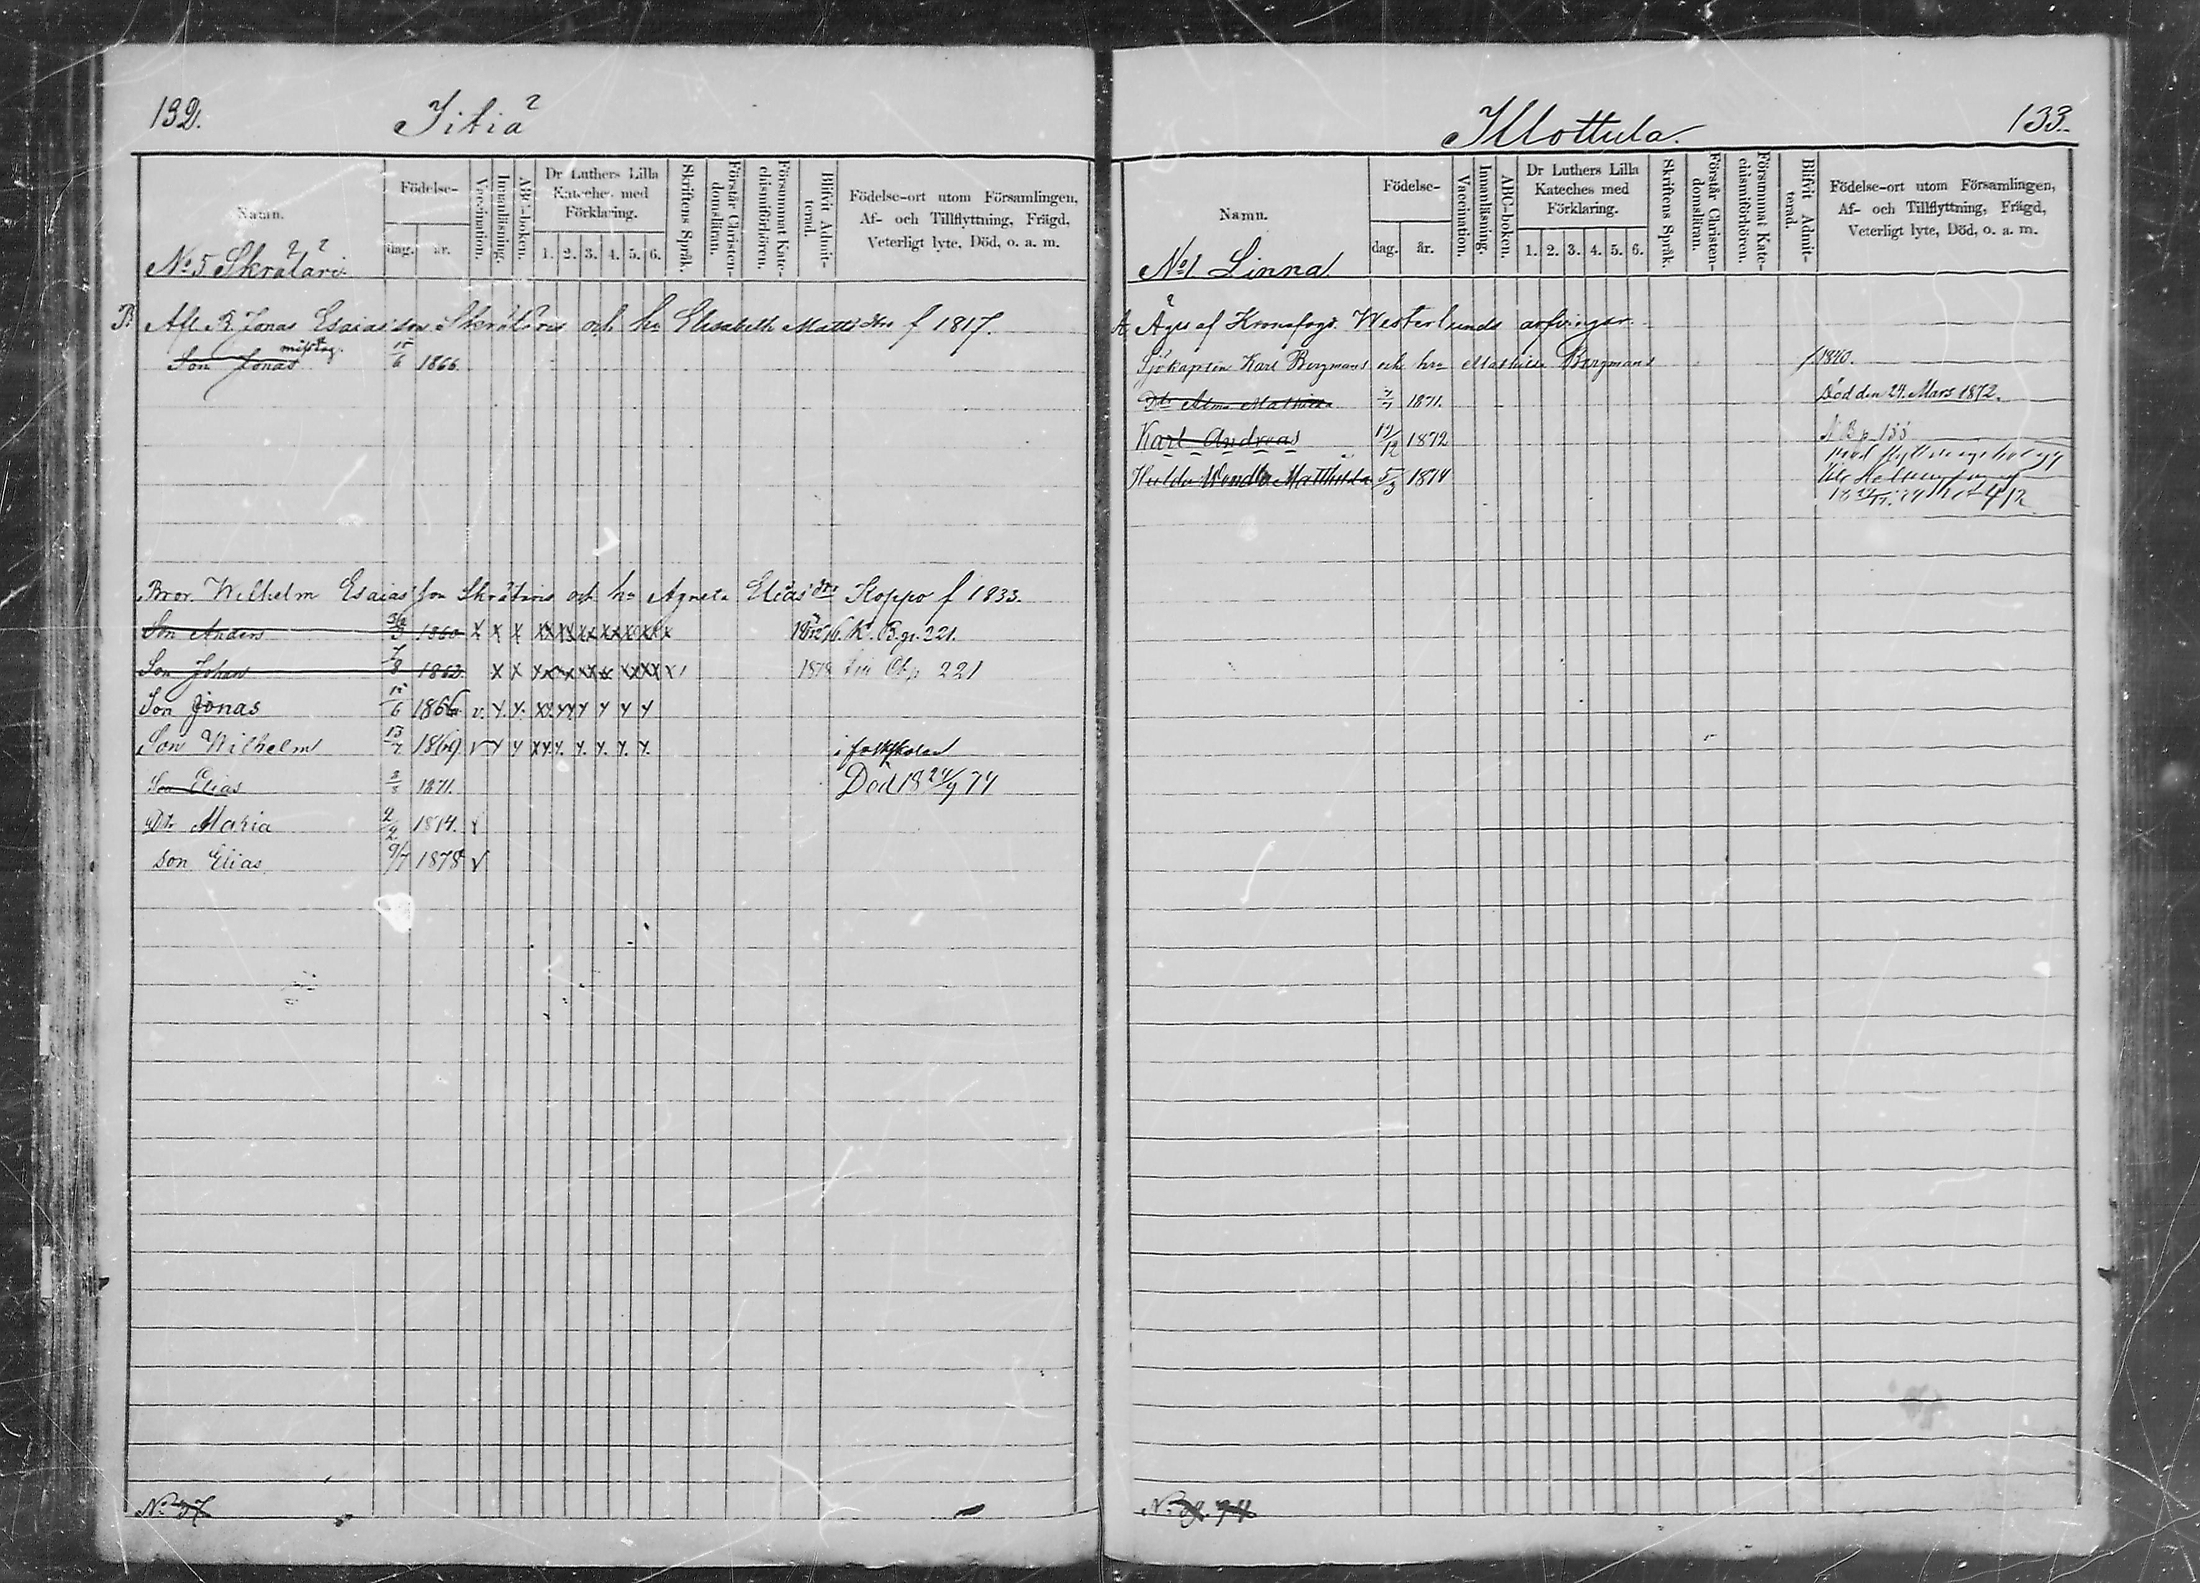 132.
Jitiå
Namn.
Födelse-
dag.
år.
Vaccination.
Innanläsning.
ABC-boken.
Dr Luthers Lilla
Kateches med
Förklaring.
1. 2. 3. 4. 5. 6.
Skriftens Språk.
Förstår Christen-
domsläran.
Försummat Kate-
chismiförhören.
Blifvit Admit-
terad.
Födelse-ort utom Församlingen,
Af- och Tillflyttning, Frägd,
Veterligt lyte, Död, o. a. m.
No 5 Skråtåri
B. Afl. R. Jonas Esaiasson Skråtåris och hu Elisabeth Matts dtr f 1817.
misstag.
Son Jonas 15/6 1866.
Bror Wilhelm Esaiasson Skråtaris och hu Agneta Elias dtr Koppo f 1833.
Son Anders 1860 X X X XX XX XX XX X XX X K. B. p. 221.
Son Johan 7/8 1862 X X 1878 221
Son Jonas 15/6 1866 v. Y. Y.
Son Wilhelm 13/7 1869 v Y Y i folkskolan
Son Elias 1871. Död 18 24/9 74
Dtr Maria 2/2 1874.
son Elias 9/7 1878 V
No 37
133.
Klottula.
Namn.
Födelse-
dag.
år.
Vaccination.
Innanläsning.
ABC-boken.
Dr Luthers Lilla
Kateches med
Förklaring.
1. 2. 3. 4. 5. 6.
Skriftens Språk.
Förstår Christen-
domsläran.
Försummat Kate-
chismiförhören.
Blifvit Admit-
terad.
Födelse-ort utom Församlingen,
Af- och Tillflyttning, Frägd,
Veterligt lyte, Död, o. a. m.
No 1 Linna
A. Äges af Kronofogd. Westerlunds arfvingar.
Sjökapten Karl Bergmans och hu Mathilda Bergmans f. 1840.
Dtr Alma Mathilda 1871. Död den 24. Mars 1872.
Karl Andreas 19/12 1872
Hulda Wendla Matthilda 5/3 1874
med flyttningsbetyg
till Helsingfors